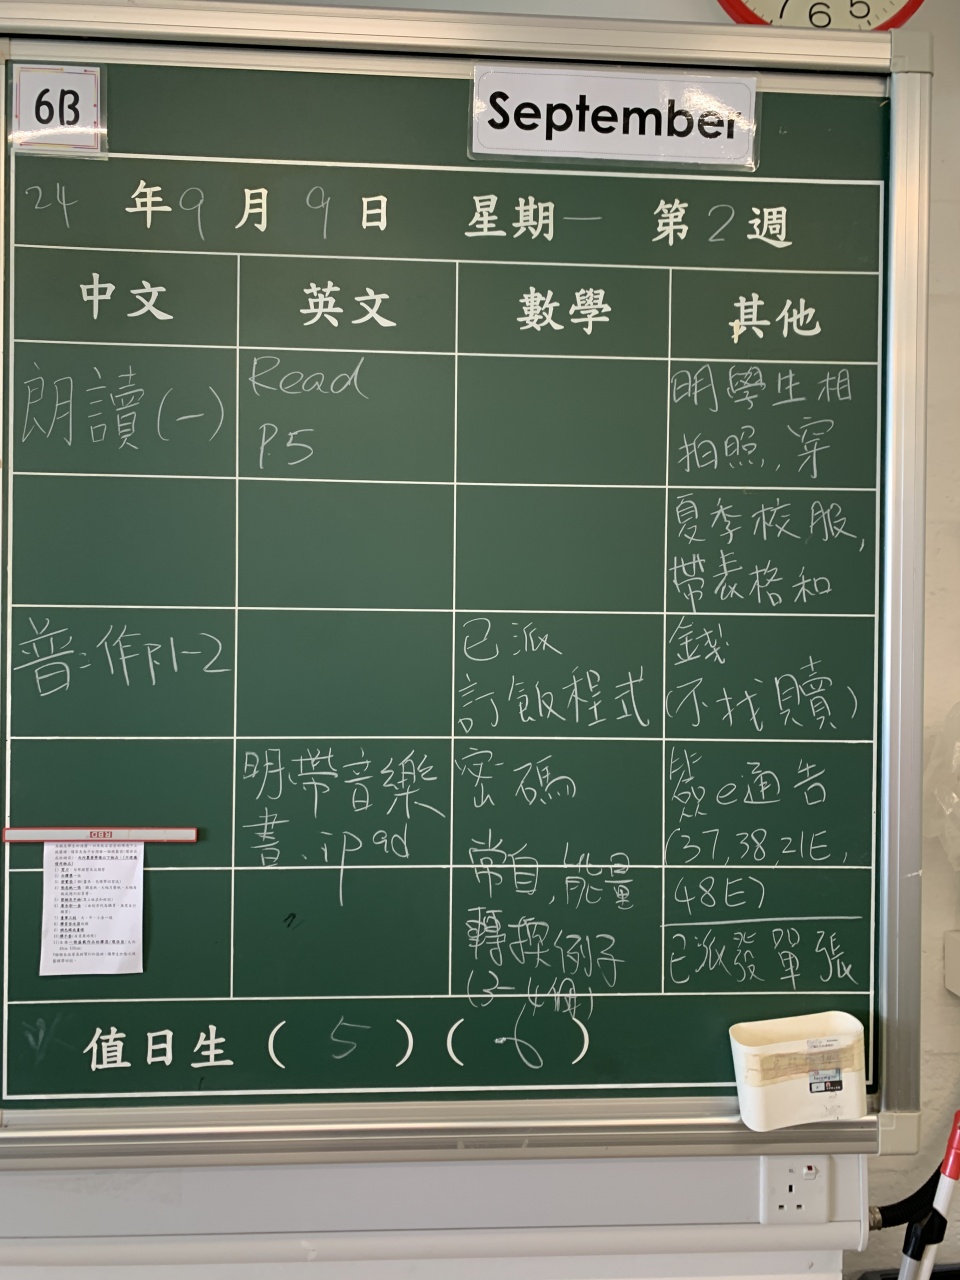 7 6 5
6B
September
24 年 9 月 9 日 星期一 第 2 週
中文 英文 數學 其他
朗讀(一)
普:作P.1-2
Read
P.5
明帶音樂
書,ipad
已派
訂飯程式
密碼
常自,能量
轉換例子
(3-4個)
明學生相
拍照,穿
夏季校服,
帶表格和
錢
(不找贖)
簽e通告
(37,38 21E,
48E)
已派發單張
RBD
值日生 ( 5 ) ( 6 )